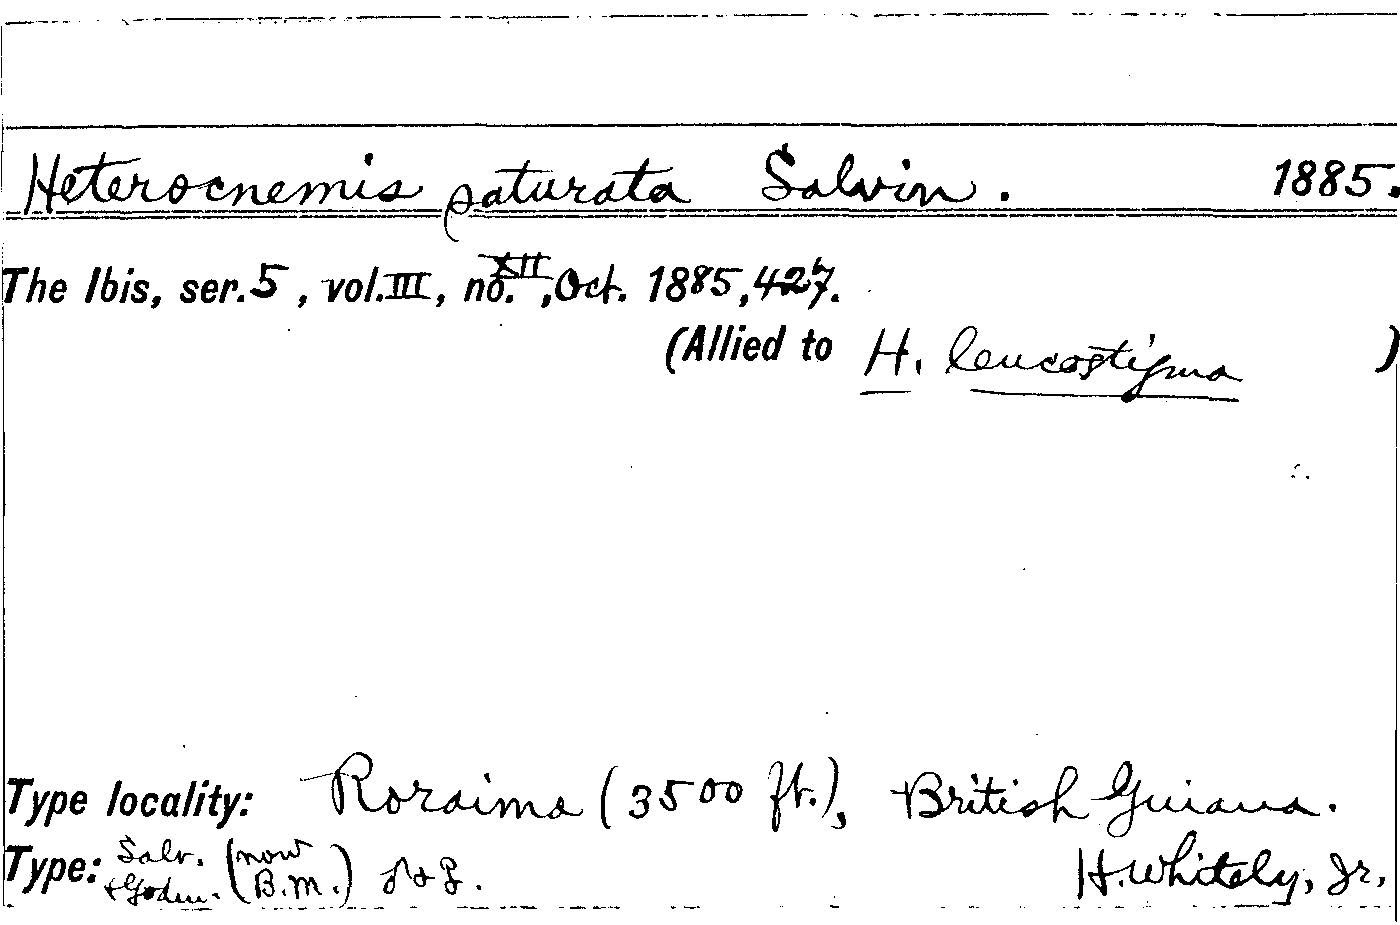 Heterocnemis saturata Salvin. 1885.
The Ibis, ser. 5, vol. III, no. XII, Oct. 1885, 427.
(Allied to H. leucostigma )
Type locality: Roraima (3500 ft.), British Guiana.
Type: Salv. + Godm. (now B.M.) H. Whitely, Jr.